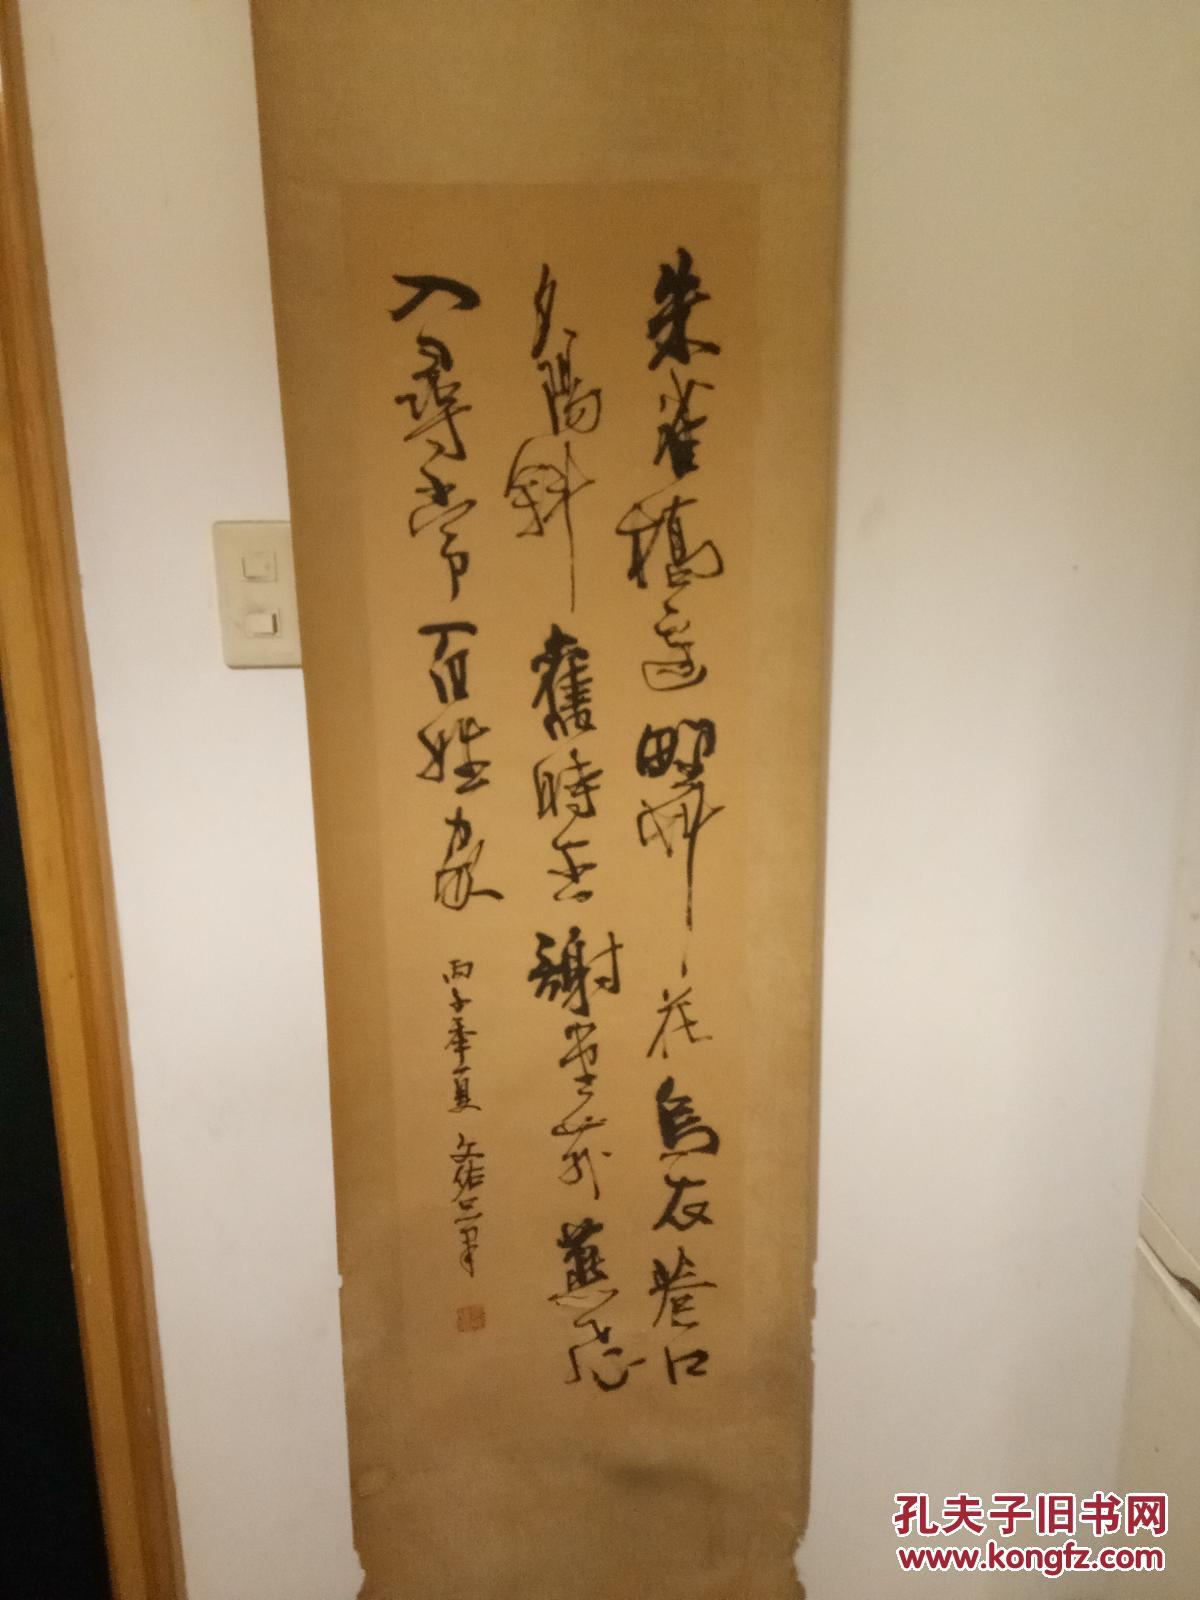 朱雀橋邊野草花烏衣巷口
夕陽斜舊時王謝堂前燕飛
入尋常百姓家
丙子季夏 文
孔夫子旧书网
www.kongfz.com